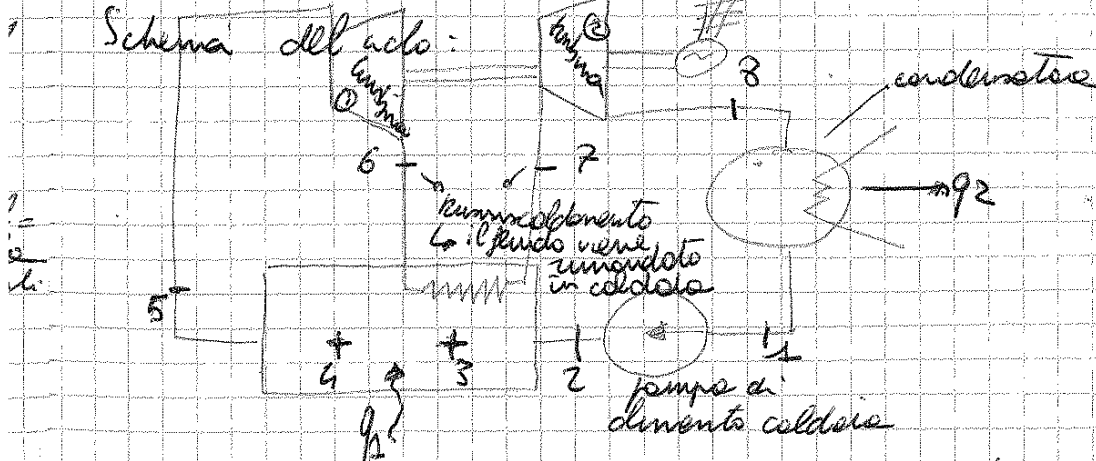 Schema del ciclo:
turbina
①
turbina
②
8
condensatore
6
7
q2
Rurriscaldamento
↳ il fluido viene
rimandato
in caldaia
5
4
3
2
1
q1
pompa di
alimento caldaia